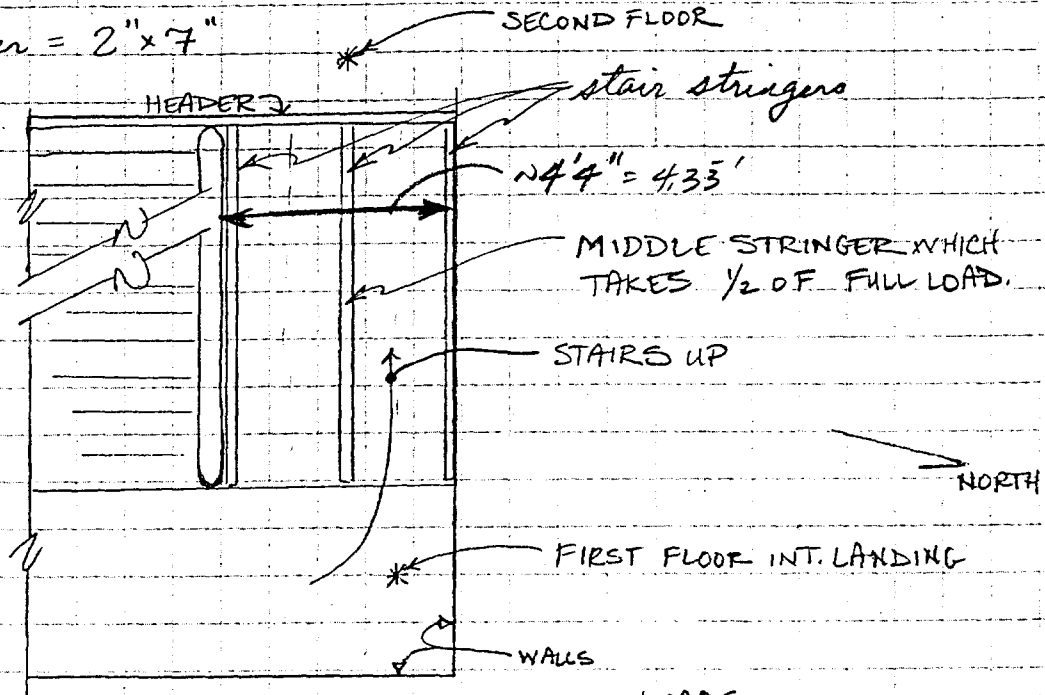 = 2"x7"
SECOND FLOOR
HEADER
stair stringers
~4'4" = 4.33'
MIDDLE STRINGER WHICH
TAKES 1/2 OF FULL LOAD.
STAIRS UP
NORTH
FIRST FLOOR INT. LANDING
WALLS